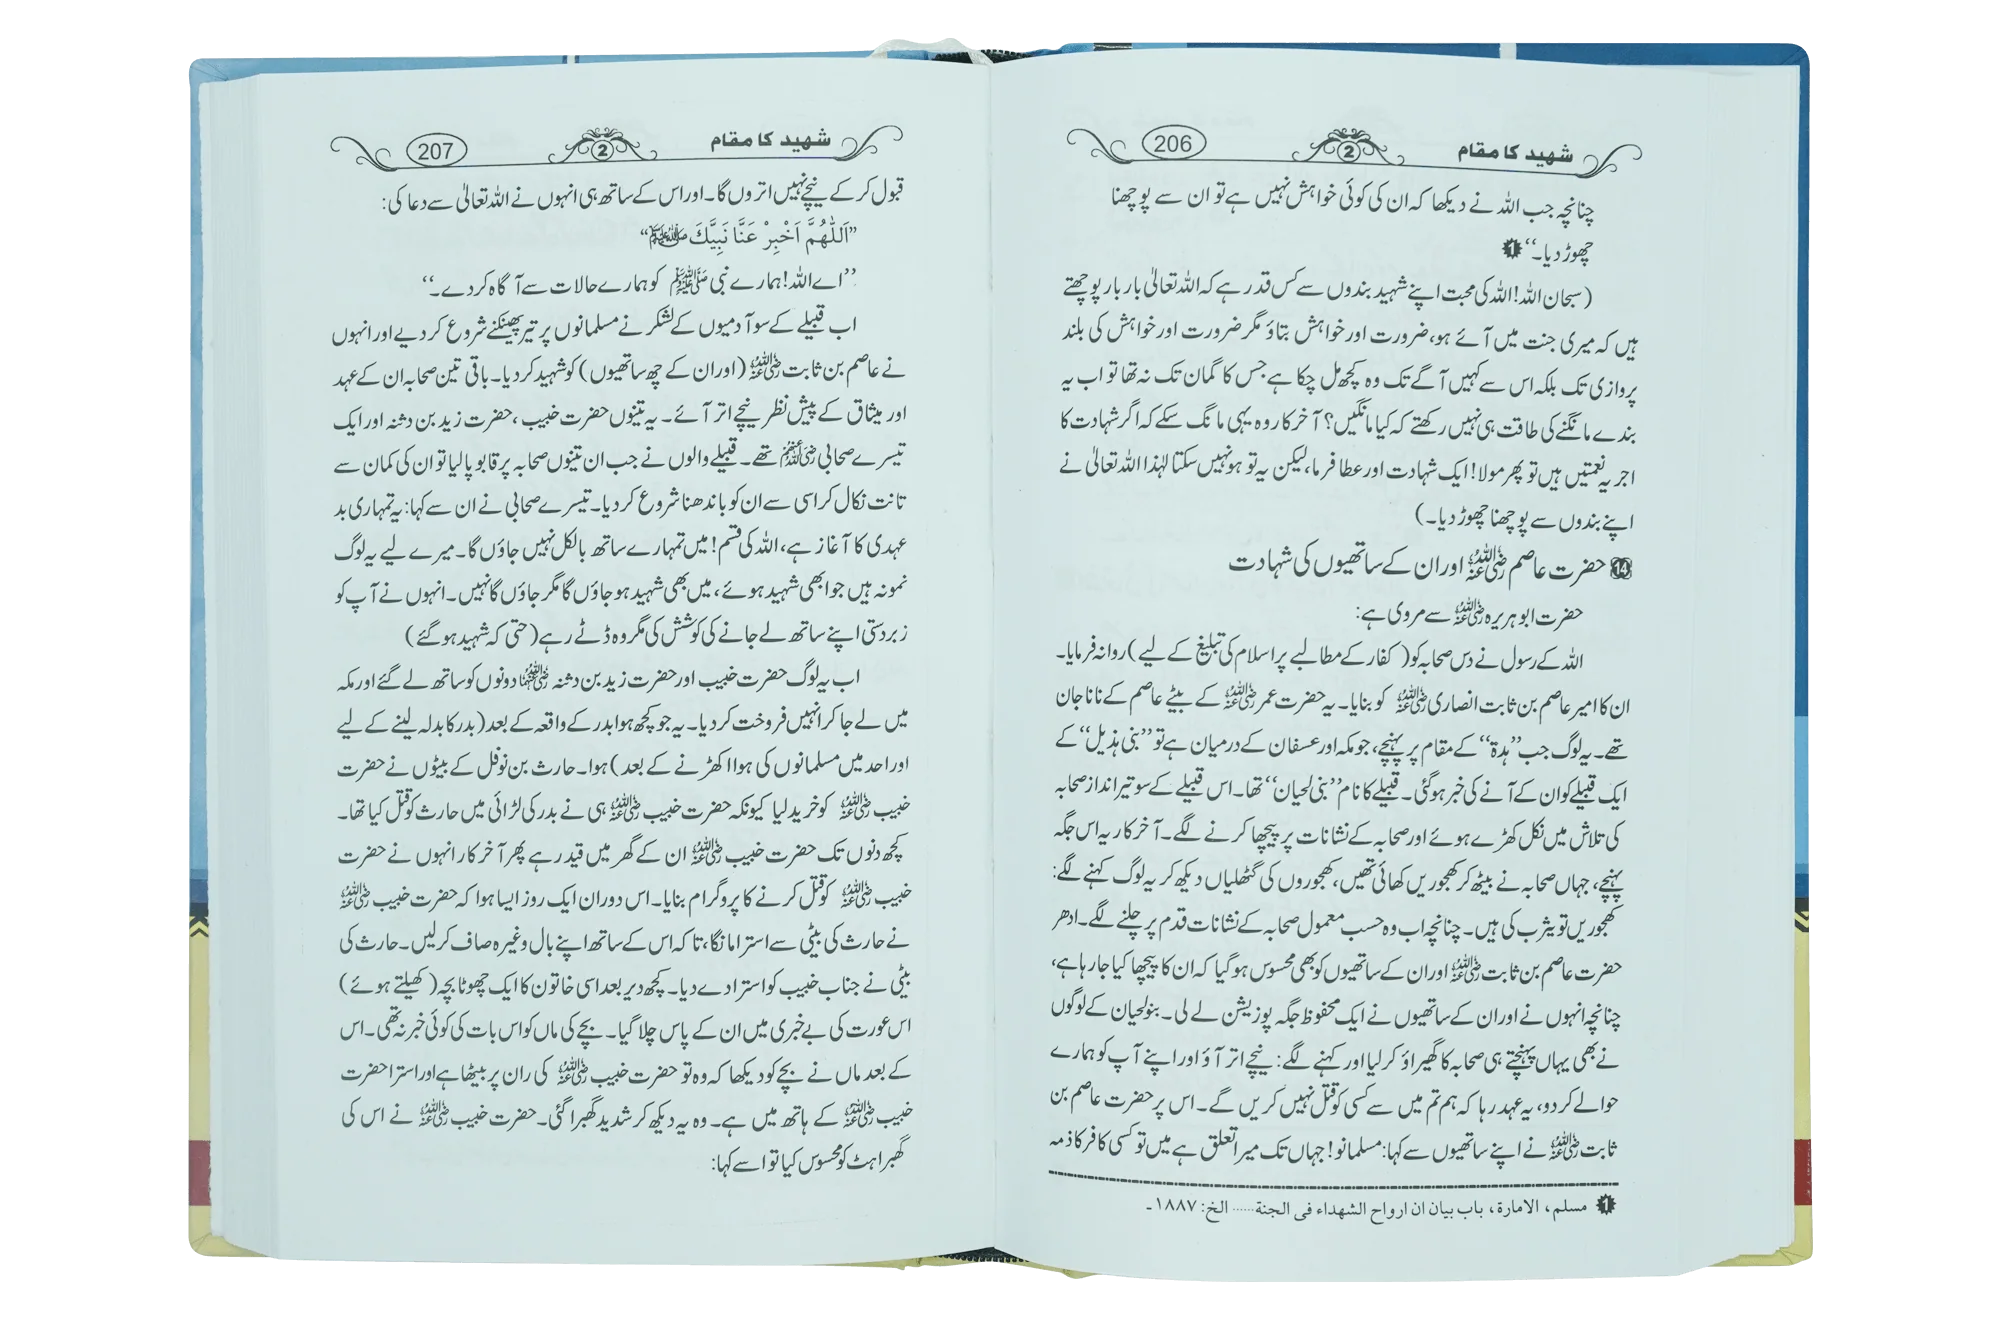 شہید کا مقام 2 206
چنانچہ جب اللہ نے دیکھا کہ ان کی کوئی خواہش نہیں ہے تو ان سے پوچھنا
چھوڑ دیا۔‘‘ 1
(سبحان اللہ! اللہ کی محبت اپنے شہید بندوں سے کس قدر ہے کہ اللہ تعالیٰ بار بار پوچھتے
ہیں کہ میری جنت میں آئے ہو، ضرورت اور خواہش بتاؤ مگر ضرورت اور خواہش کی بلند
پردازی تک بلکہ اس سے کہیں آگے تک وہ کچھ مل چکا ہے جس کا گمان تک نہ تھا تو اب یہ
بندے مانگنے کی طاقت ہی نہیں رکھتے کہ کیا مانگیں؟ آخر کار وہ یہی مانگ سکے کہ اگر شہادت کا
اجر یہ نعمتیں ہیں تو پھر مولا! ایک شہادت اور عطا فرما، لیکن یہ تو ہو نہیں سکتا لہٰذا اللہ تعالیٰ نے
اپنے بندوں سے پوچھنا چھوڑ دیا۔)
14 حضرت عاصم رضی اللہ عنہ اور ان کے ساتھیوں کی شہادت
حضرت ابو ہریرہ رضی اللہ عنہ سے مروی ہے:
اللہ کے رسول نے دس صحابہ کو (کفار کے مطالبے پر اسلام کی تبلیغ کے لیے) روانہ فرمایا۔
ان کا امیر عاصم بن ثابت انصاری رضی اللہ عنہ کو بنایا۔ یہ حضرت عمر رضی اللہ عنہ کے بیٹے عاصم کے نانا جان
تھے۔ یہ لوگ جب ’’ہدۃ‘‘ کے مقام پر پہنچے، جو مکہ اور عسفان کے درمیان ہے تو ’’بنی ہذیل‘‘ کے
ایک قبیلے کو ان کے آنے کی خبر ہو گئی۔ قبیلے کا نام ’’بنی لحیان‘‘ تھا۔ اس قبیلے کے سو تیر انداز صحابہ
کی تلاش میں نکل کھڑے ہوئے اور صحابہ کے نشانات پر پیچھا کرنے لگے۔ آخر کار یہ اس جگہ
پہنچے، جہاں صحابہ نے بیٹھ کر کھجوریں کھائی تھیں، کھجوروں کی گٹھلیاں دیکھ کر یہ لوگ کہنے لگے:
کھجوریں تو یثرب کی ہیں۔ چنانچہ اب وہ حسب معمول صحابہ کے نشانات قدم پر چلنے لگے۔ ادھر
حضرت عاصم بن ثابت رضی اللہ عنہ اور ان کے ساتھیوں کو بھی محسوس ہو گیا کہ ان کا پیچھا کیا جا رہا ہے،
چنانچہ انہوں نے اور ان کے ساتھیوں نے ایک محفوظ جگہ پوزیشن لے لی۔ بنو لحیان کے لوگوں
نے بھی یہاں پہنچتے ہی صحابہ کا گھیراؤ کر لیا اور کہنے لگے: نیچے اتر آؤ اور اپنے آپ کو ہمارے
حوالے کر دو، یہ عہد رہا کہ ہم تم میں سے کسی کو قتل نہیں کریں گے۔ اس پر حضرت عاصم بن
ثابت رضی اللہ عنہ نے اپنے ساتھیوں سے کہا: مسلمانو! جہاں تک میرا تعلق ہے میں تو کسی کافر کا ذمہ
1 مسلم، الامارة، باب بيان ان ارواح الشهداء فى الجنة...... الخ: ۱۸۸۷۔
شہید کا مقام 2 207
قبول کر کے نیچے نہیں اتروں گا۔ اور اس کے ساتھ ہی انہوں نے اللہ تعالیٰ سے دعا کی:
”اَللّٰهُمَّ اَخْبِرْ عَنَّا نَبِيَّكَ ﷺ“
’’اے اللہ! ہمارے نبی ﷺ کو ہمارے حالات سے آگاہ کر دے۔‘‘
اب قبیلے کے سو آدمیوں کے لشکر نے مسلمانوں پر تیر پھینکنے شروع کر دیے اور انہوں
نے عاصم بن ثابت رضی اللہ عنہ (اور ان کے چھ ساتھیوں) کو شہید کر دیا۔ باقی تین صحابہ ان کے عہد
اور میثاق کے پیش نظر نیچے اتر آئے۔ یہ تینوں حضرت خبیب، حضرت زید بن دثنہ اور ایک
تیسرے صحابی رضی اللہ عنہم تھے۔ قبیلے والوں نے جب ان تینوں صحابہ پر قابو پا لیا تو ان کی کمان سے
تانت نکال کر اسی سے ان کو باندھنا شروع کر دیا۔ تیسرے صحابی نے ان سے کہا: یہ تمہاری بد
عہدی کا آغاز ہے، اللہ کی قسم! میں تمہارے ساتھ بالکل نہیں جاؤں گا۔ میرے لیے یہ لوگ
نمونہ ہیں جو ابھی شہید ہوئے، میں بھی شہید ہو جاؤں گا مگر جاؤں گا نہیں۔ انہوں نے آپ کو
زبردستی اپنے ساتھ لے جانے کی کوشش کی مگر وہ ڈٹے رہے (حتی کہ شہید ہو گئے)
اب یہ لوگ حضرت خبیب اور حضرت زید بن دثنہ رضی اللہ عنہما دونوں کو ساتھ لے گئے اور مکہ
میں لے جا کر انہیں فروخت کر دیا۔ یہ جو کچھ ہوا بدر کے واقعہ کے بعد (بدر کا بدلہ لینے کے لیے
اور احد میں مسلمانوں کی ہوا اکھڑنے کے بعد) ہوا۔ حارث بن نوفل کے بیٹوں نے حضرت
خبیب رضی اللہ عنہ کو خرید لیا کیونکہ حضرت خبیب رضی اللہ عنہ ہی نے بدر کی لڑائی میں حارث کو قتل کیا تھا۔
کچھ دنوں تک حضرت خبیب رضی اللہ عنہ ان کے گھر میں قید رہے پھر آخر کار انہوں نے حضرت
خبیب رضی اللہ عنہ کو قتل کرنے کا پروگرام بنایا۔ اس دوران ایک روز ایسا ہوا کہ حضرت خبیب رضی اللہ عنہ
نے حارث کی بیٹی سے استرا مانگا، تا کہ اس کے ساتھ اپنے بال وغیرہ صاف کر لیں۔ حارث کی
بیٹی نے جناب خبیب کو استرا دے دیا۔ کچھ دیر بعد اسی خاتون کا ایک چھوٹا بچہ (کھیلتے ہوئے)
اس عورت کی بے خبری میں ان کے پاس چلا گیا۔ بچے کی ماں کو اس بات کی کوئی خبر نہ تھی۔ اس
کے بعد ماں نے بچے کو دیکھا کہ وہ تو حضرت خبیب رضی اللہ عنہ کی ران پر بیٹھا ہے اور استرا حضرت
خبیب رضی اللہ عنہ کے ہاتھ میں ہے۔ وہ یہ دیکھ کر شدید گھبرا گئی۔ حضرت خبیب رضی اللہ عنہ نے اس کی
گھبراہٹ کو محسوس کیا تو اسے کہا: